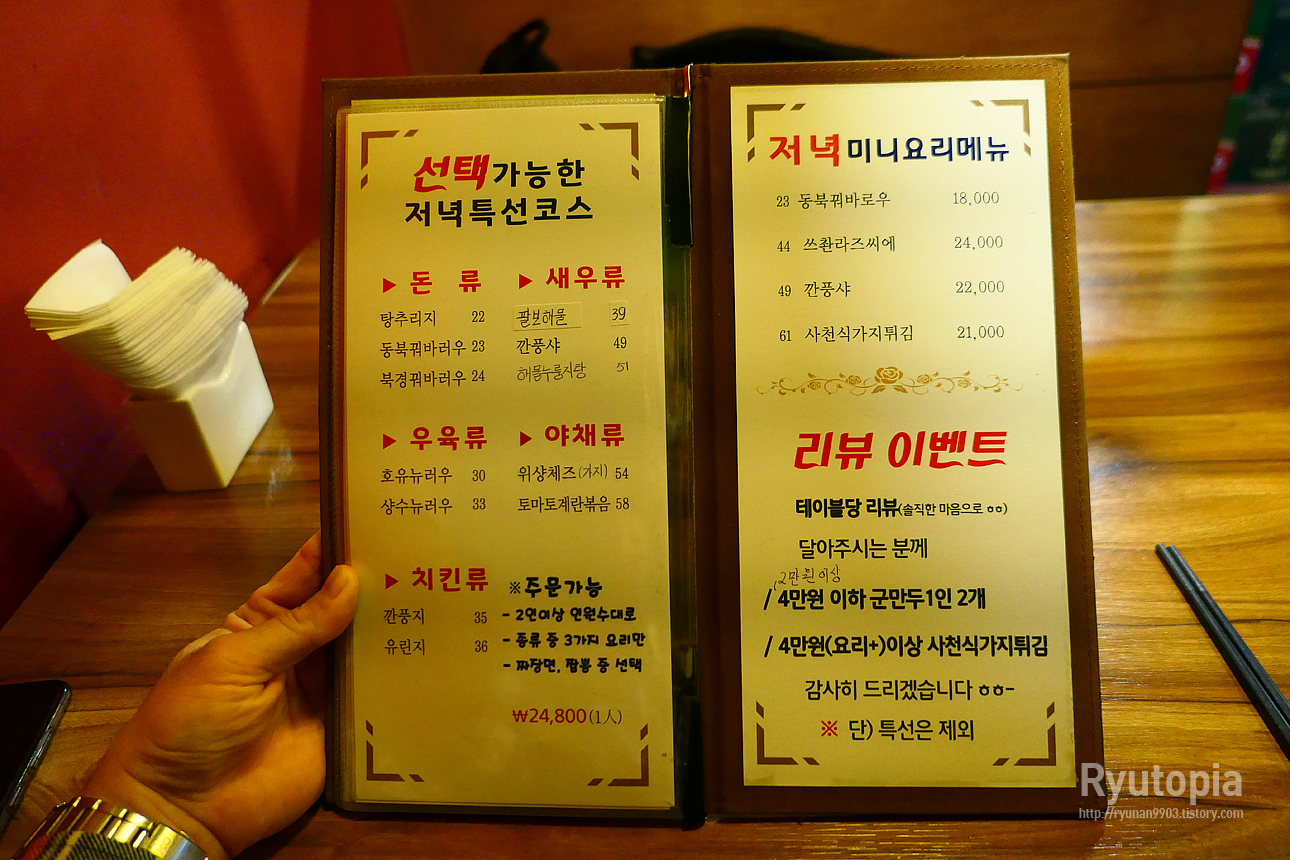 선택가능한
저녁특선코스
▶ 돈 류
탕추리지 22
동북꿔바러우 23
북경꿔바러우 24
▶ 새우류
팔보해물 39
깐풍샤 49
해물누룽지탕 51
▶ 우육류
호유뉴러우 30
샹수뉴러우 33
▶ 야채류
위샹체즈(가지) 54
토마토계란볶음 58
▶ 치킨류
깐풍지 35
유린지 36
※주문가능
- 2인이상 인원수대로
- 종류 중 3가지 요리만
- 짜장면, 짬뽕 중 선택
₩24,800(1人)
저녁미니요리메뉴
23 동북꿔바로우 18,000
44 쓰촨라즈씨에 24,000
49 깐풍샤 22,000
61 사천식가지튀김 21,000
리뷰 이벤트
테이블당 리뷰(솔직한 마음으로 ㅎㅎ)
달아주시는 분께
2만원이상
/ 4만원 이하 군만두1인 2개
/ 4만원(요리+)이상 사천식가지튀김
감사히 드리겠습니다 ㅎㅎ~
※ 단) 특선은 제외
Ryutopia
http://ryunan9903.tistory.com